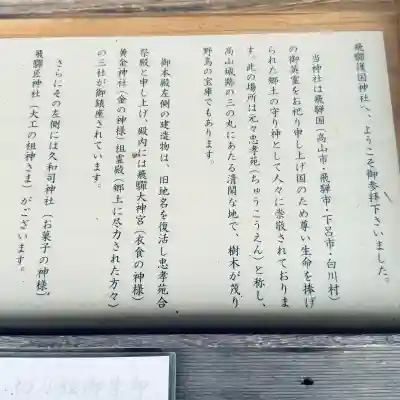 飛騨護国神社へ、ようこそ御参拝下さいました。
当神社は飛騨国（高山市・飛騨市・下呂市・白川村）
の御英霊をお祀り申し上げ国のため尊い生命を捧げ
られた郷土の守り神として人々に崇敬されておりま
す。此の場所は元々忠孝苑（ちゅうこうえん）と称し、
高山城跡の三の丸にあたる清閑な地で、樹木が茂り
野鳥の宝庫でもあります。
御本殿左側の建造物は、旧地名を復活し忠孝苑合
祭殿と申し上げ、殿内には飛騨大神宮（衣食の神様）
黄金神社（金の神様）祖霊殿（郷土に尽力された方々）
の三社が御鎮座されています。
さらにその左側には久和司神社（お菓子の神様）、
飛騨匠神社（大工の祖神さま）がございます。